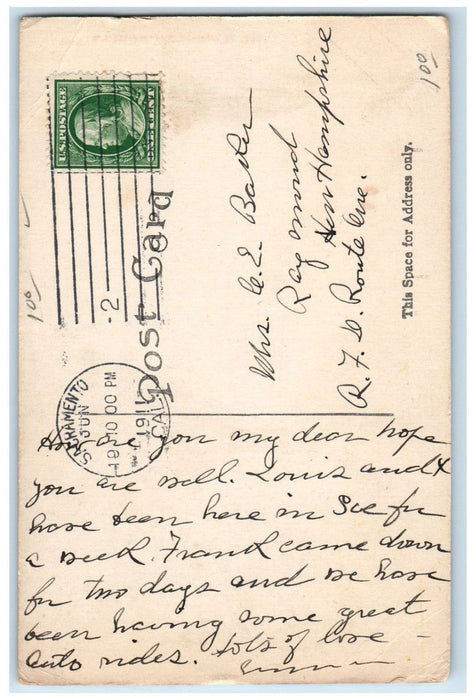 U.S. POSTAGE
ONE CENT
Post Card
This Space for Address only.
SACRAMENTO
JUN
19
10 00 PM
1911
CAL.
2
100
100
Mrs. C. E. Baker
Raymond
New Hampshire
R. F. D. Route One.
How are you my dear hope
you are well. Louis and I
have been here in Sac for
a week. Frank came down
for two days and we have
been having some great
auto rides. Lots of love –